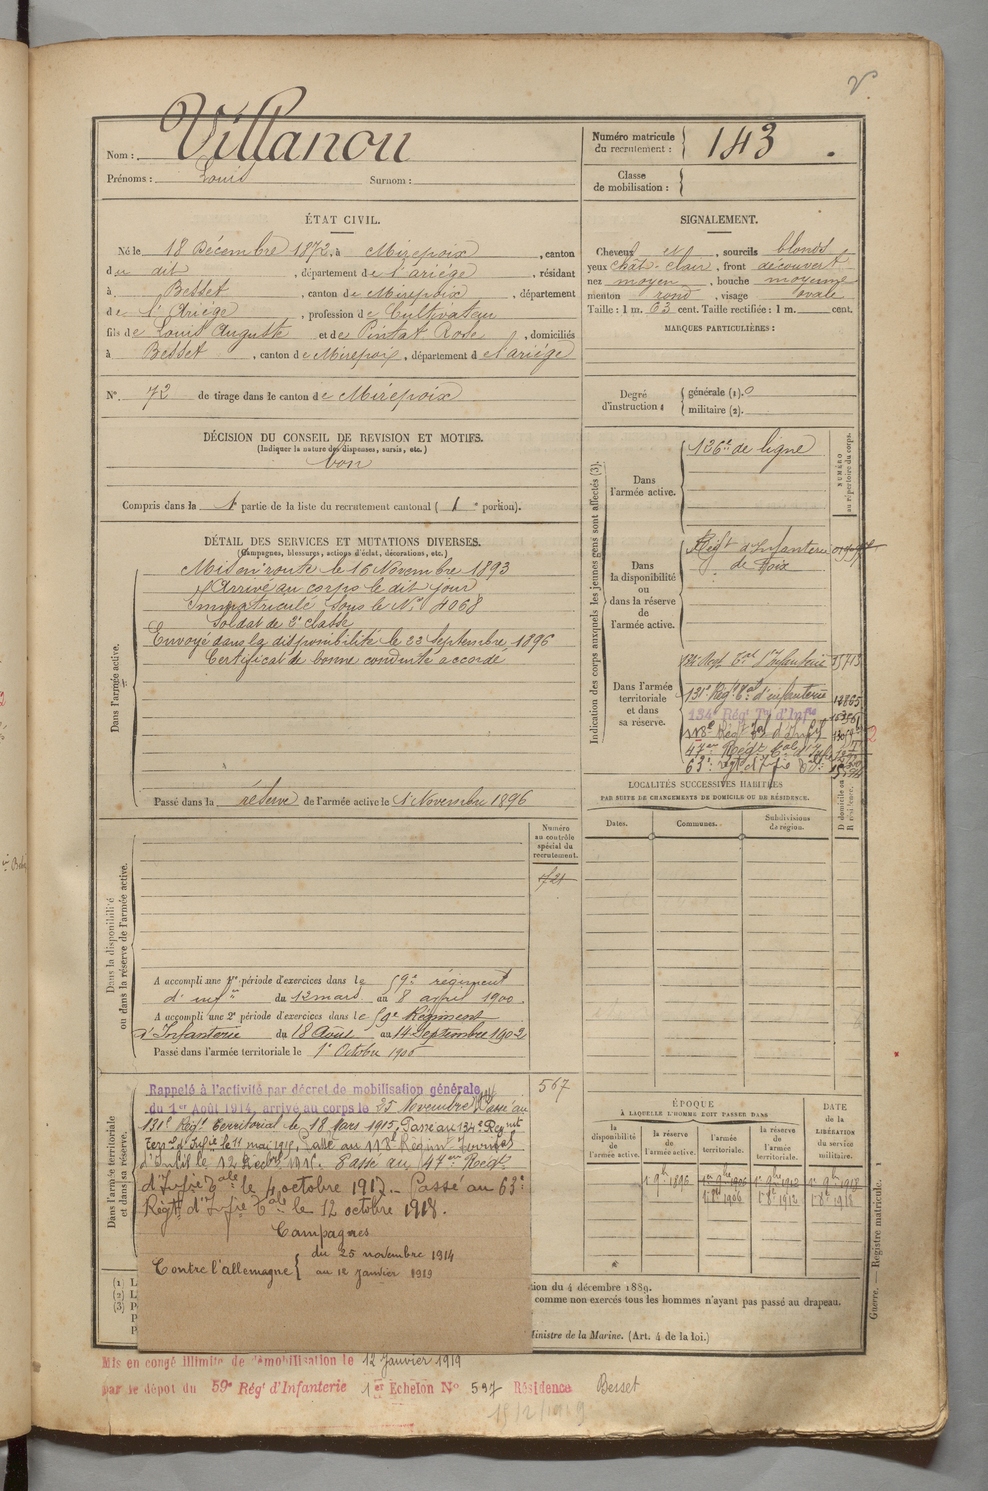 V.
Nom : Villanou
Prénoms : Louis Surnom :
Numéro matricule du recrutement : 143
Classe de mobilisation :
ÉTAT CIVIL.
Né le 18 Décembre 1872, à Mirepoix, canton
du dit, département de l'ariège, résidant
à Besset, canton de Mirepoix, département
de l'Ariège, profession de Cultivateur
fils de Louis Auguste et de Pintat Rose, domiciliés
à Besset, canton de Mirepoix, département de l'ariège
N° 72 de tirage dans le canton de Mirepoix
SIGNALEMENT.
Cheveux et, sourcils blonds
yeux chât. clair, front découvert
nez moyen, bouche moyenne
menton rond, visage ovale
Taille : 1 m. 63 cent. Taille rectifiée : 1 m. cent.
MARQUES PARTICULIÈRES :
Degré d'instruction : générale (1). 0
militaire (2).
DÉCISION DU CONSEIL DE REVISION ET MOTIFS.
(Indiquer la nature des dispenses, sursis, etc.)
bon
Compris dans la 1e partie de la liste du recrutement cantonal ( 1e portion).
DÉTAIL DES SERVICES ET MUTATIONS DIVERSES.
(Campagnes, blessures, actions d'éclat, décorations, etc.)
Dans l'armée active.
Mis en route le 16 Novembre 1893
Arrivé au corps le dit jour
Immatriculé sous le N° 4068
Soldat de 2e classe
Envoyé dans la disponibilité le 23 Septembre 1896
Certificat de bonne conduite accordé
Passé dans la réserve de l'armée active le 1er Novembre 1896
Indication des corps auxquels les jeunes gens sont affectés (3).
NUMÉRO au répertoire du corps.
Dans l'armée active.
126e de ligne
Dans la disponibilité ou dans la réserve de l'armée active.
Régt d'Infanterie
de Foix
Dans l'armée territoriale et dans sa réserve.
134 Regt Tal d'Infanterie 15713
131e Régt Tal d'infanterie 12865
134e Rég Tal d'Infie
118e Régt Tal d'Infie
47em Régt Tal d'Infie
63e régt d'Infie Tale
LOCALITÉS SUCCESSIVES HABITÉES
PAR SUITE DE CHANGEMENTS DE DOMICILE OU DE RÉSIDENCE.
Dates. Communes. Subdivisions de région. D domicile ou R résidence.
Dans la disponibilité ou dans la réserve de l'armée active.
Numéro au contrôle spécial du recrutement.
721
A accompli une 1re période d'exercices dans le 59e régiment
d'infie du 12 mars au 8 avril 1900
A accompli une 2e période d'exercices dans le 59e Régiment
d'Infanterie du 18 Août au 14 Septembre 1902
Passé dans l'armée territoriale le 1er Octobre 1906
Dans l'armée territoriale et dans sa réserve.
567
Rappelé à l'activité par décret de mobilisation générale
du 1er Août 1914, arrivé au corps le 25 Novembre 1914 Passé au
131e Régt Territorial le 18 Mars 1915, Passé au 134e Régint
Terral d'Infie le 11 mai 1915, Passé au 118e Régimt Territal
d'Infie le 12 Decbre 1915. Passé au 47em Régt
d'Infie Tale le 4 octobre 1917. Passé au 63e
Régt d'Infie Tale le 12 octobre 1918.
Campagnes
Contre l'allemagne du 25 novembre 1914
au 12 janvier 1919
ÉPOQUE
À LAQUELLE L'HOMME DOIT PASSER DANS
la disponibilité de l'armée active. la réserve de l'armée active. l'armée territoriale. la réserve de l'armée territoriale.
DATE de la LIBÉRATION du service militaire.
1er 9bre 1896 1er 9bre 1906 1er 9bre 1912 1er 9bre 1918
1er 8bre 1906 1er 8bre 1912 1er 8bre 1918
(1) L
(2) L
(3) P
P
P
tion du 4 décembre 1889.
comme non exercés tous les hommes n'ayant pas passé au drapeau.
Ministre de la Marine. (Art. 4 de la loi.)
Guerre. — Registre matricule. 1
Mis en congé illimité de démobilisation le 12 Janvier 1919
par le dépôt du 59e Régt d'Infanterie 1er Echelon N° 597 Résidence Besset
18/2/1919